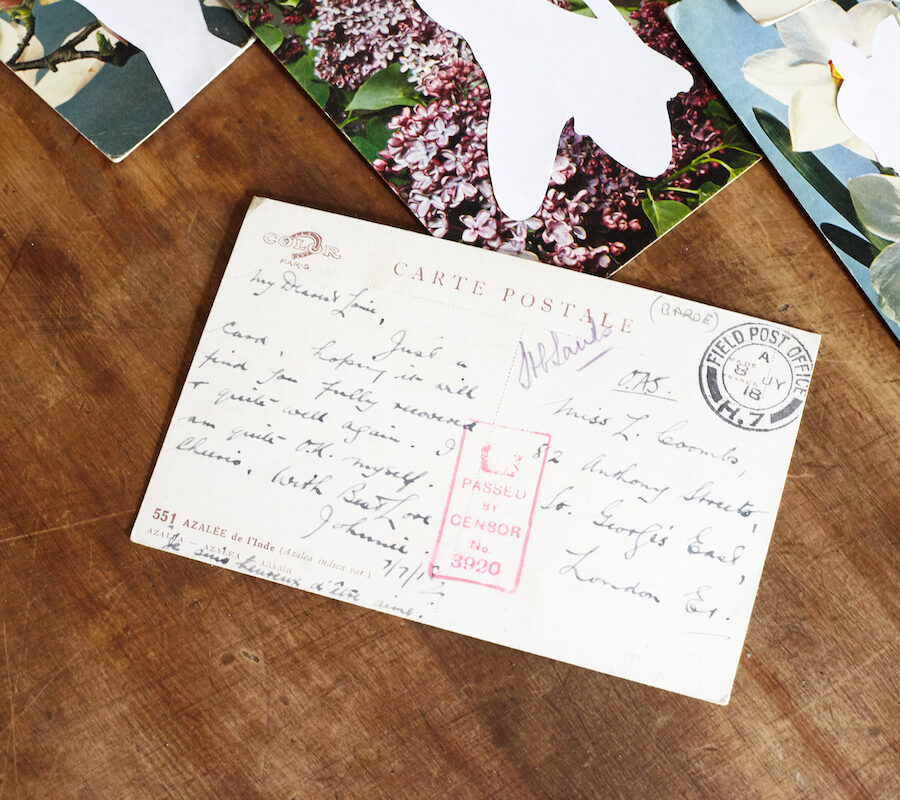 COLOR
PARIS
CARTE POSTALE
(BARDE)
FIELD POST OFFICE
A
8 JY
18
H.7
MADE
FRANCE
My Dearest
Just a
Card, hoping it will
find you fully recovered
& quite well again. I
am quite O.K. myself.
Cheerio.
With Best Love
Johnnie.
7/7/18
Je suis heureux d'être aimé.
O.A.S.
Miss L. Coombs,
82 Anthony Street,
St. George's East,
London E1.
PASSED
BY
CENSOR
No.
3920
551 AZALÉE de l'Inde (Azalea indica var).
AZALEA - AZALEA
АЗАЛІЯ